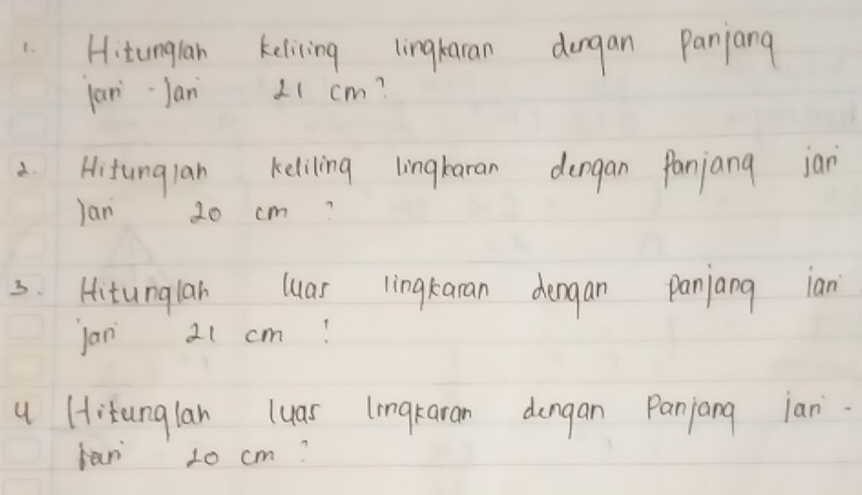 1. Hitunglah keliling lingkaran dengan Panjang
jari - Jari 21 cm?
2. Hitunglah keliling lingkaran dengan Panjang jari
Jari 20 cm ?
3. Hitunglah luas lingkaran dengan panjang jari
jari 21 cm !
4 Hitunglah luas lingkaran dengan Panjang jari -
jari 20 cm ?